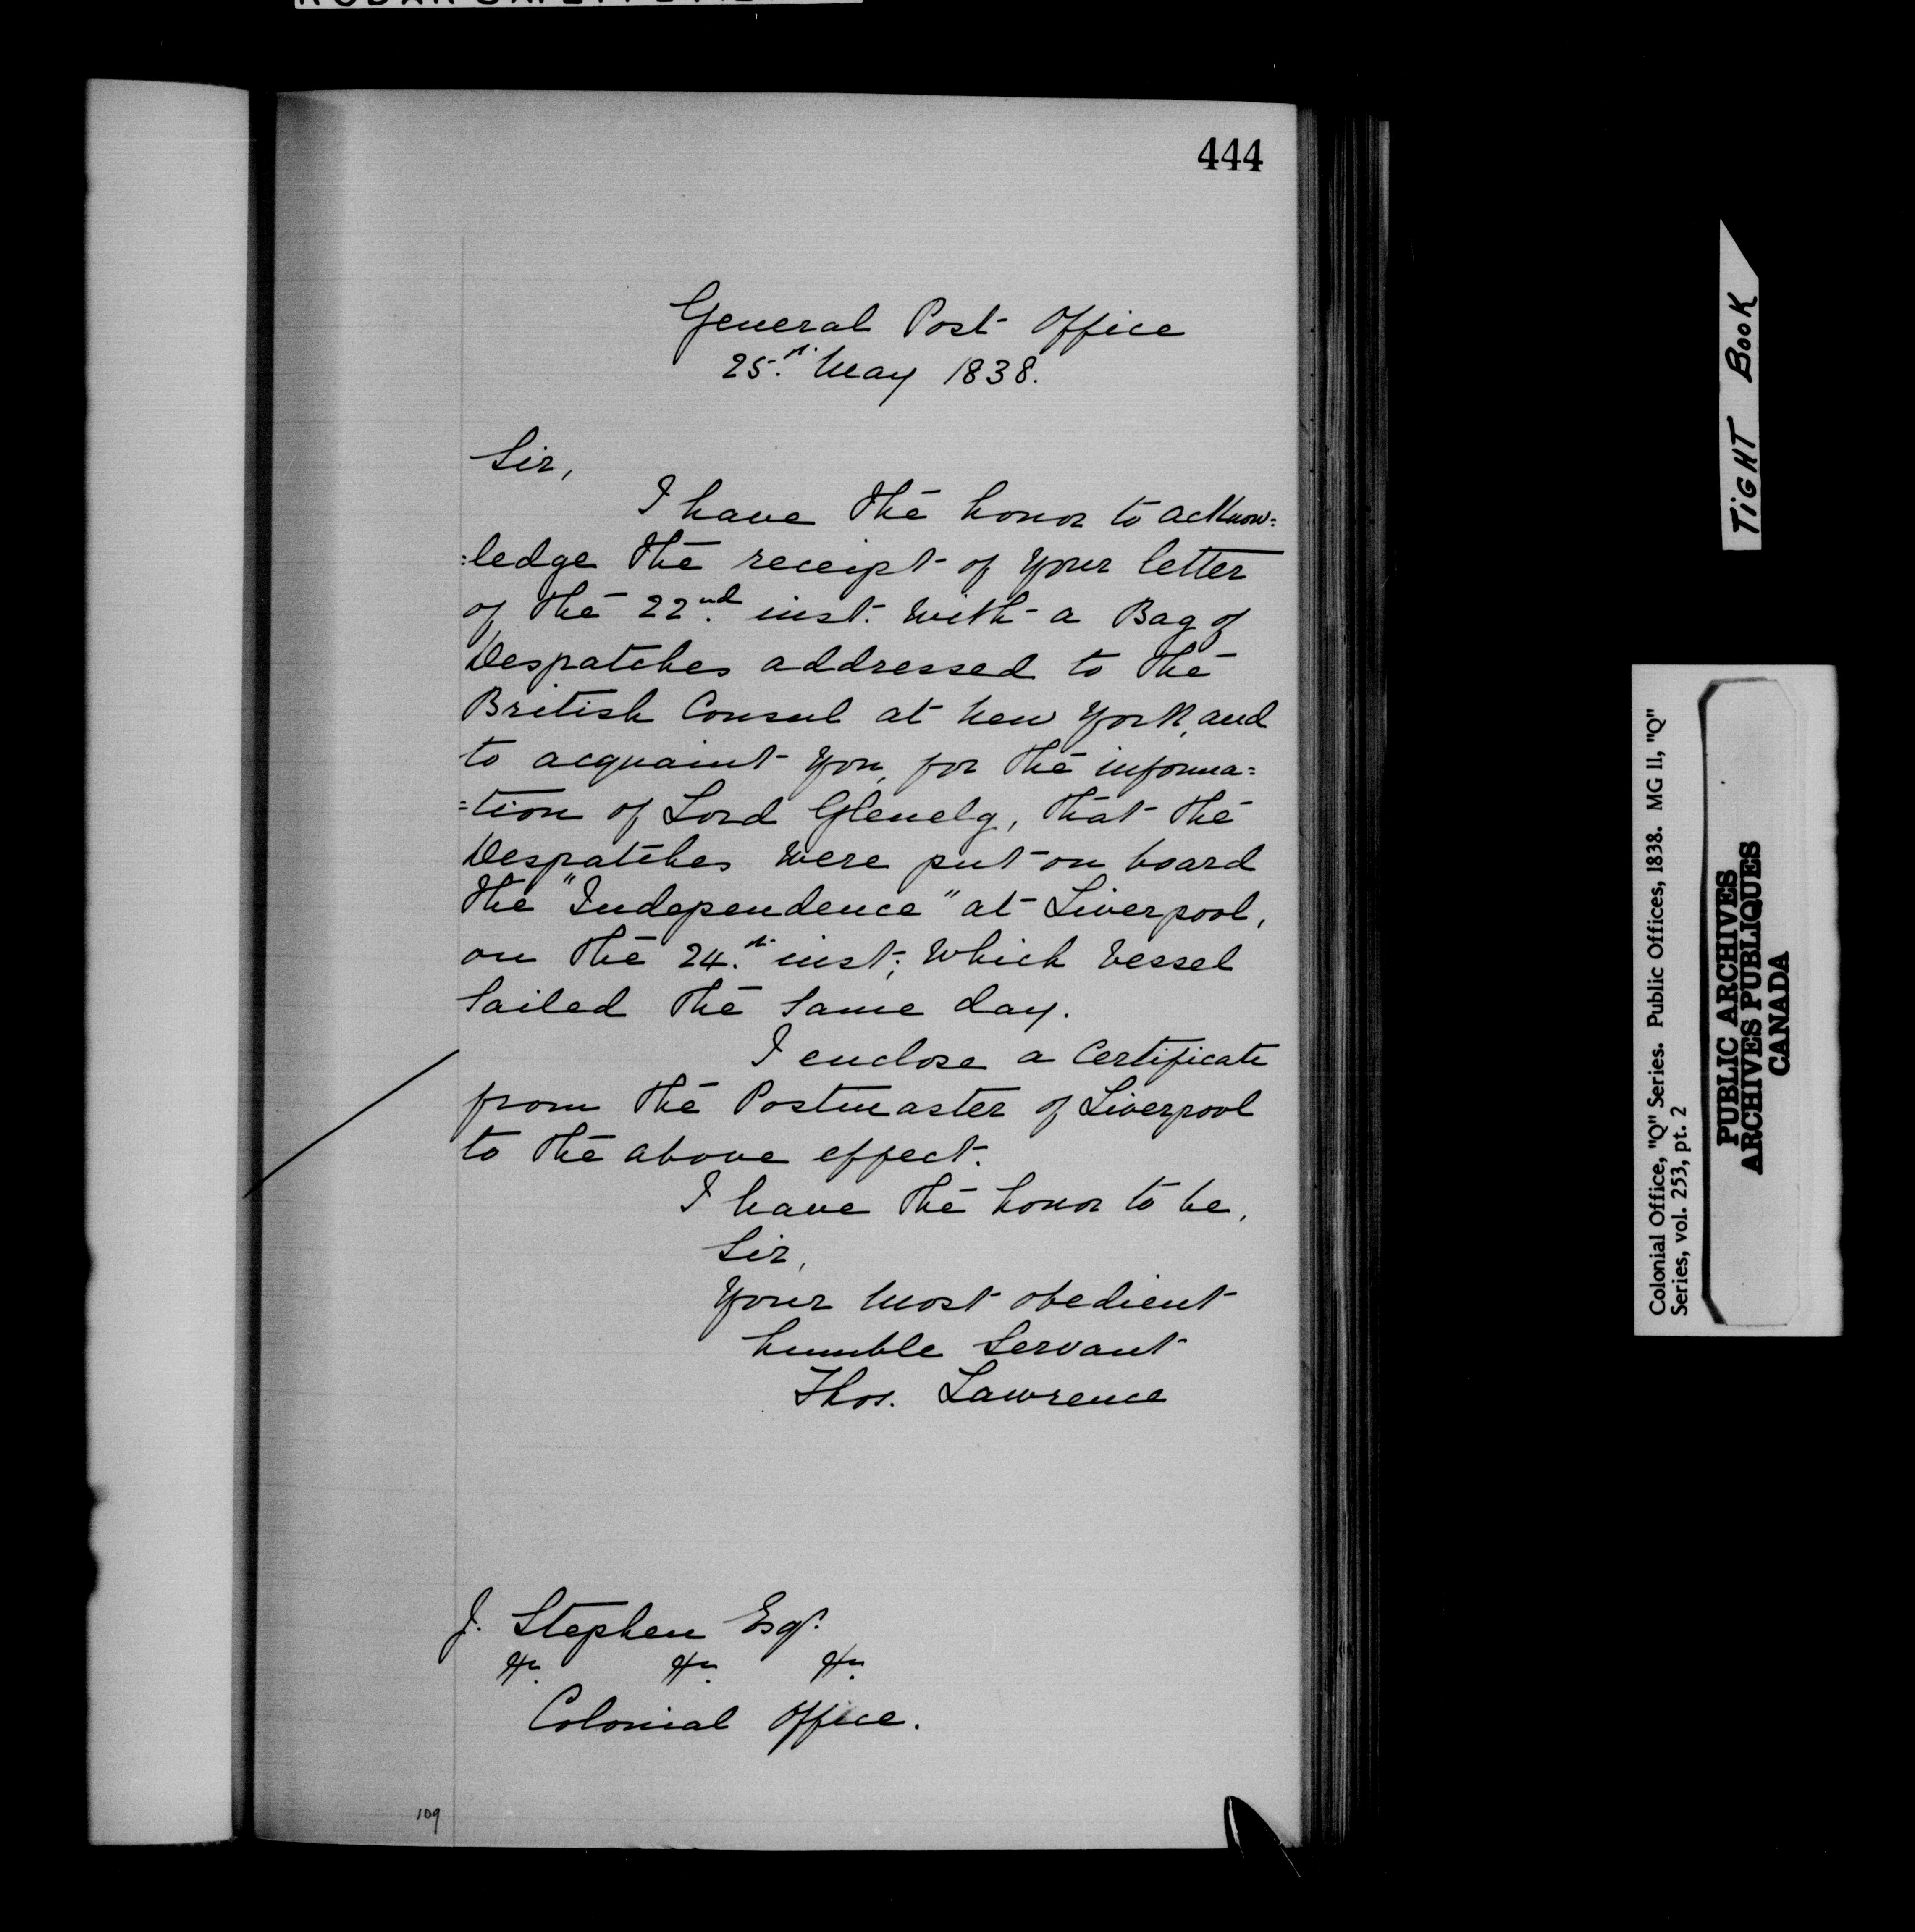 444
General Post Office
25.th May 1838.
Sir,
I have the honor to acknow=
=ledge the receipt of your letter
of the 22nd. inst. with a Bag of
Despatches addressed to the
British Consul at New York, and
to acquaint you, for the informa=
=tion of Lord Glenelg, that the
Despatches were put on board
the "Independence" at Liverpool,
on the 24.th inst; which vessel
sailed the same day.
I enclose a Certificate
from the Postmaster of Liverpool
to the above effect.
I have the honor to be,
Sir,
Your most obedient
humble servant
Thos. Lawrence
J. Stephen Esqr.
&c. &c. &c.
Colonial Office.
109
TIGHT BOOK
Colonial Office, "Q" Series. Public Offices, 1838. MG 11, "Q"
Series, vol. 253, pt. 2
PUBLIC ARCHIVES
ARCHIVES PUBLIQUES
CANADA